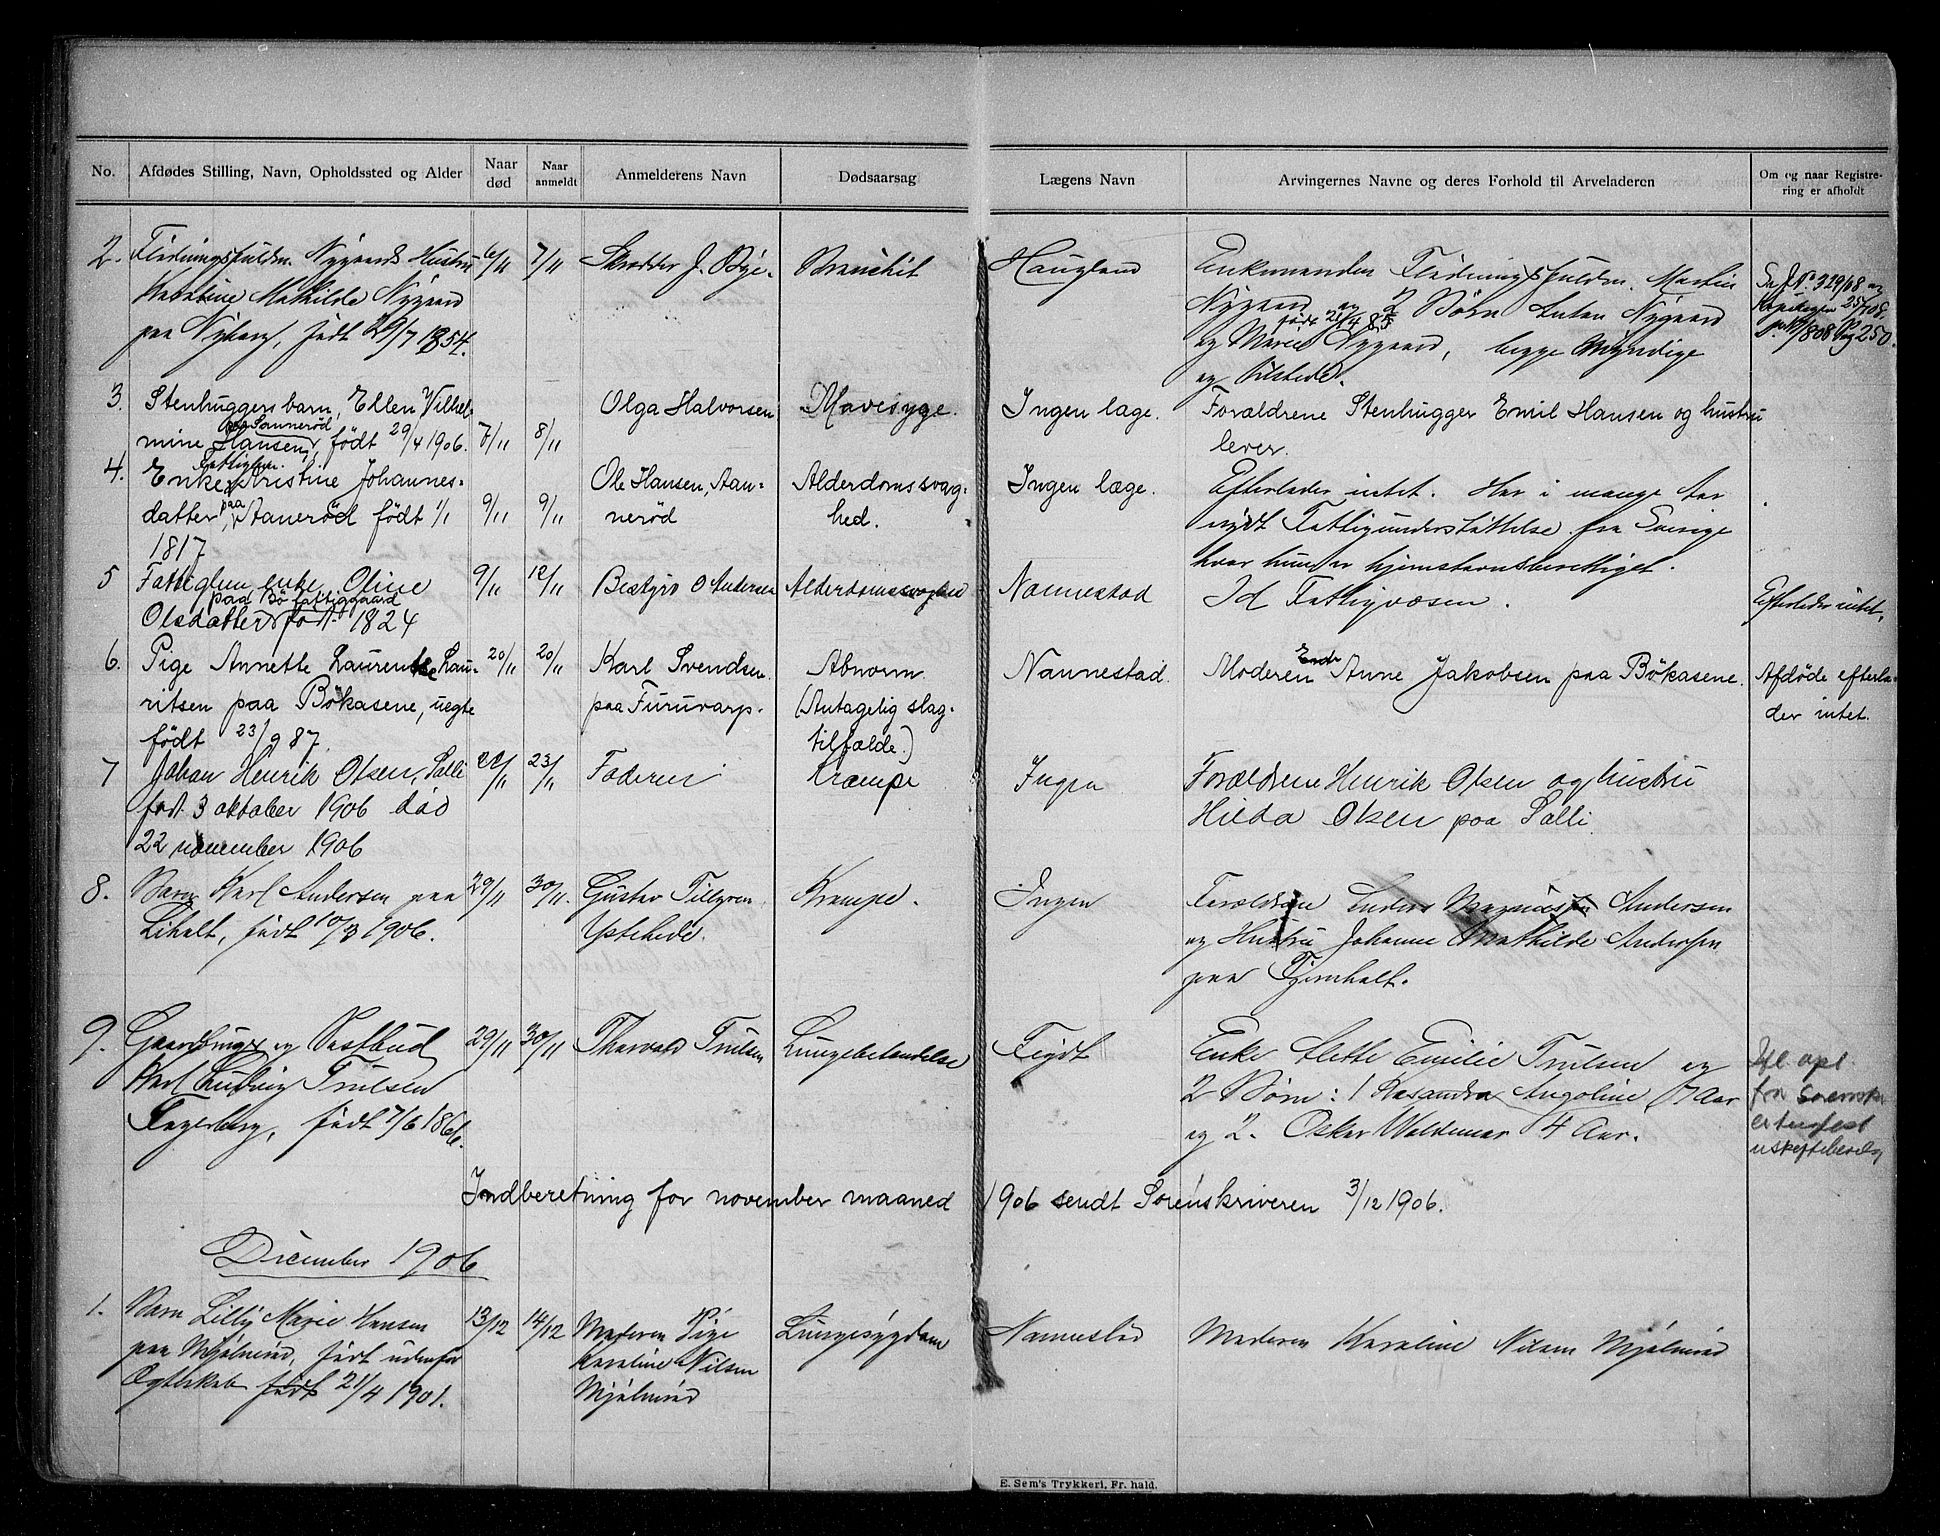 No.
Afdødes Stilling, Navn, Opholdssted og Alder
Naar død
Naar anmeldt
Anmelderens Navn
Dødsaarsag
Lægens Navn
Arvingernes Navne og deres Forhold til Arveladeren
Om og naar Registre-
ring er afholdt
2. Nygaards Hustru 6/11 7/11 Skrædder J. Bronchit Haugland Enkemanden Martin
Mathilde Nygaard
Nygaard og 2 Børn Anton Nygaard
født 21/4 85
paa Nyborg, født 29/7 1854.
og Marie Nygaard, begge Myndige
og tilstede.
No. 329/08
Pag 250.
3. Stenhuggers barn, Ellen Vilhel-
mine Hansen, født 29/4 1906. 7/11 8/11 Olga Halvorsen Mavesyge. Ingen læge. Forældrene Stenhugger Emil Hansen og hustru
lever.
4. Enke Kristine Johannes-
datter, paa Aanerød født 1/1
1817
9/11 9/11
Ole Hansen, Aan-
nerød
Alderdomssvag-
hed.
Ingen læge.
Efterlader intet. Har i mange Aar
nydt Fattigunderstøttelse fra Sverige
hvor hun er hjemstavnsberettiget.
5 Fattiglem enke Oline
paa Bø fattiggaard
Olsdatter født 1824
9/11 12/11
Bestyrer O Andersen
Nannestad
Id Fattigvæsen.
Efterlader intet.
6. Pige Annette Laurentse Lau-
ritsen paa Bökasene, uegte
født 23/9 87.
20/11 20/11
Karl Svendsen
paa Furuvarp.
Abnorm.
(Antagelig slag-
tilfælde.)
Nannestad.
Moderen Enke Anne Jakobsen paa Bökasene.
Afdöde efterla-
der intet.
7 Johan Henrik Olsen, Salli
født 3 oktober 1906 død
22 november 1906
22/11 23/11
Faderen
Krampe
Ingen
Forældrene Henrik Olsen og hustru
Hilda Olsen paa Salli
8. Barn Karl Andersen paa
født 10/3 1906.
29/11 30/11.
Gustav
Ystehede.
Krampe.
Ingen
Forældrene Anders Andersen
og Hustru Johanne Mathilde Andersen
paa
9. Gaardbruger og Postbud
Karl Ludvig Trulsen
Fagerberg, født 7/6 1866.
29/11 30/11
Thorvald Trulsen
Lungebetændelse
Enke Emilie Trulsen og
2 Børn: 1 Kasandra Angoline 7 Aar
og 2. Oskar Waldemar 4 Aar.
opl.
Indberetning for november maaned 1906 sendt Sorenskriveren 3/12 1906.
December 1906
1. Barn Lilly Marie Hansen
paa Mjølnerød, født udenfor
Ægteskab født 21/4 1901.
13/12 14/12
Moderen Pige
Karoline Nilsen
Mjølnerød
Lungesygdom
Nannestad
Moderen Karoline Nilsen Mjølnerød
E. Sem's Trykkeri, Fr. hald.